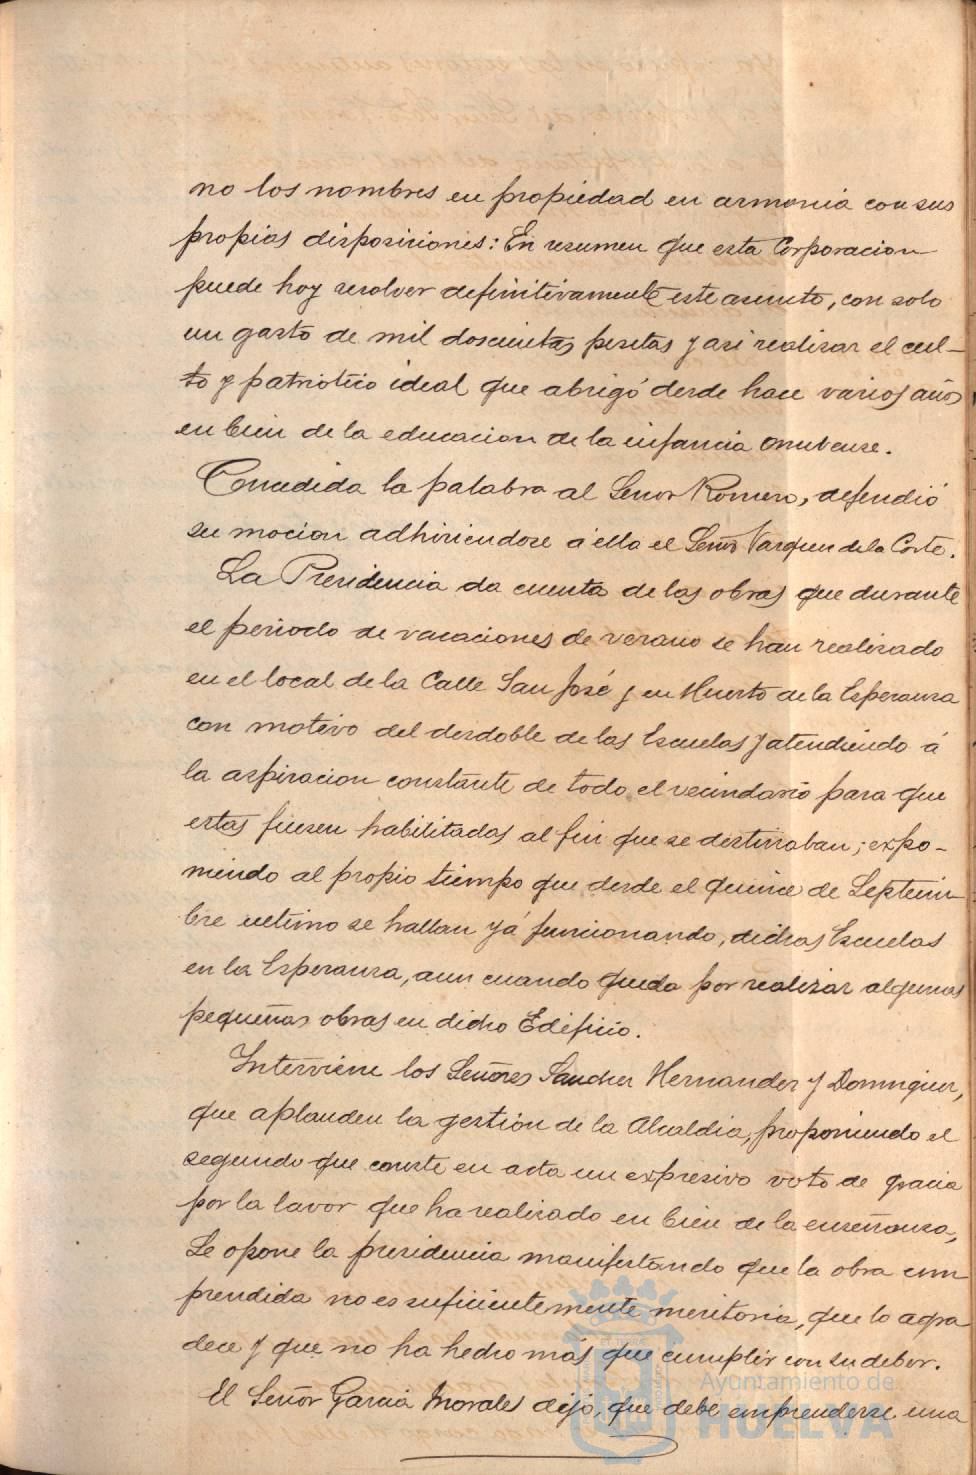 no los nombres en propiedad en armonia con sus
propias disposiciones: En resumen que esta Corporacion
puede hoy resolver definitivamente este asunto, con solo
un gasto de mil doscientas pesetas y asi realizar el cul-
to y patriotico ideal que abrigó desde hace varios años
en bien de la educacion de la infancia onubense.
Concedida la palabra al Señor Romero, defendió
su mocion adhiriendose á ella el Señor Vazquez de la Corte.
La Presidencia da cuenta de las obras que durante
el periodo de vacaciones de verano se han realizado
en el local de la Calle San José y en Huerto de la Esperanza
con motivo del desdoble de las Escuelas y atendiendo á
la aspiracion constante de todo el vecindario para que
estas fuesen habilitadas al fin que se destinaban; expo-
niendo al propio tiempo que desde el quince de Septiem
bre ultimo se hallan yá funcionando, dichas Escuelas
en la Esperanza, aun cuando queda por realizar algunas
pequeñas obras en dicho Edificio.
Interviene los Señores Sanchez Hernandez y Dominguez,
que aplauden la gestión de la Alcaldia, proponiendo el
segundo que conste en acta un expresivo voto de gracia
por la lavor que ha realizado en bien de la enseñanza,
Se opone la presidencia manifestando que la obra com
prendida no es suficientemente meritoria, que lo agra
dece y que no ha hecho más que cumplir con su deber.
El Señor Garcia Morales dijó, que debe emprenderse una
Ayuntamiento de
HUELVA